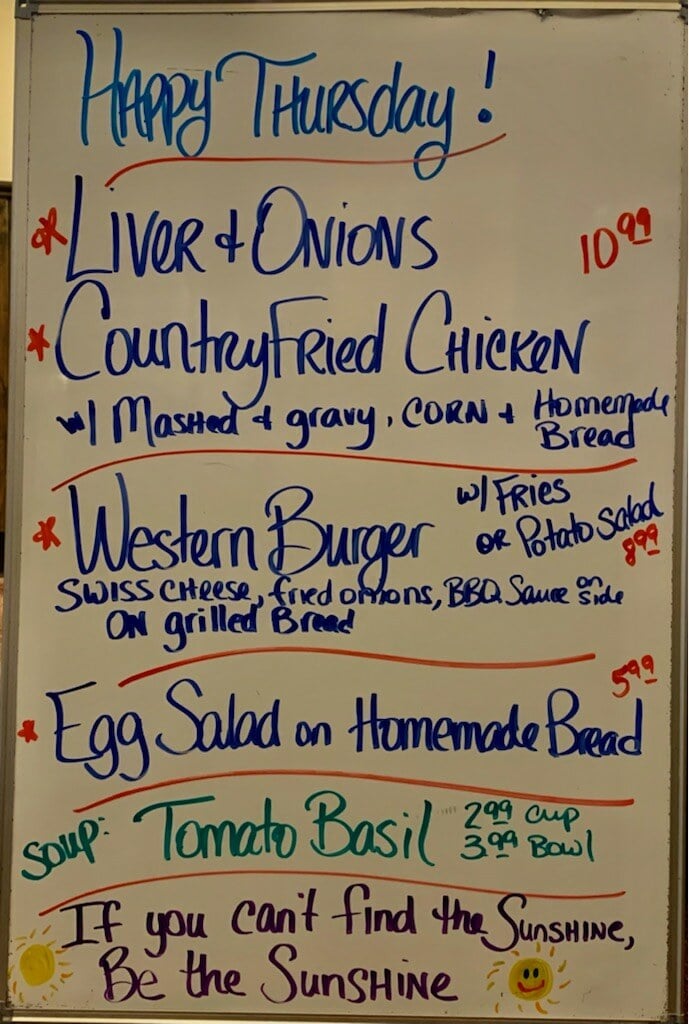 Happy Thursday!
* Liver & Onions 10.99
* Country Fried Chicken
w/ Mashed & gravy, corn & Homemade
Bread
* Western Burger w/ Fries
or Potato Salad
8.99
Swiss cheese, fried onions, BBQ Sauce on side
on grilled Bread
5.99
* Egg Salad on Homemade Bread
Soup: Tomato Basil 2.99 cup
3.99 Bowl
If you can't find the Sunshine,
Be the Sunshine